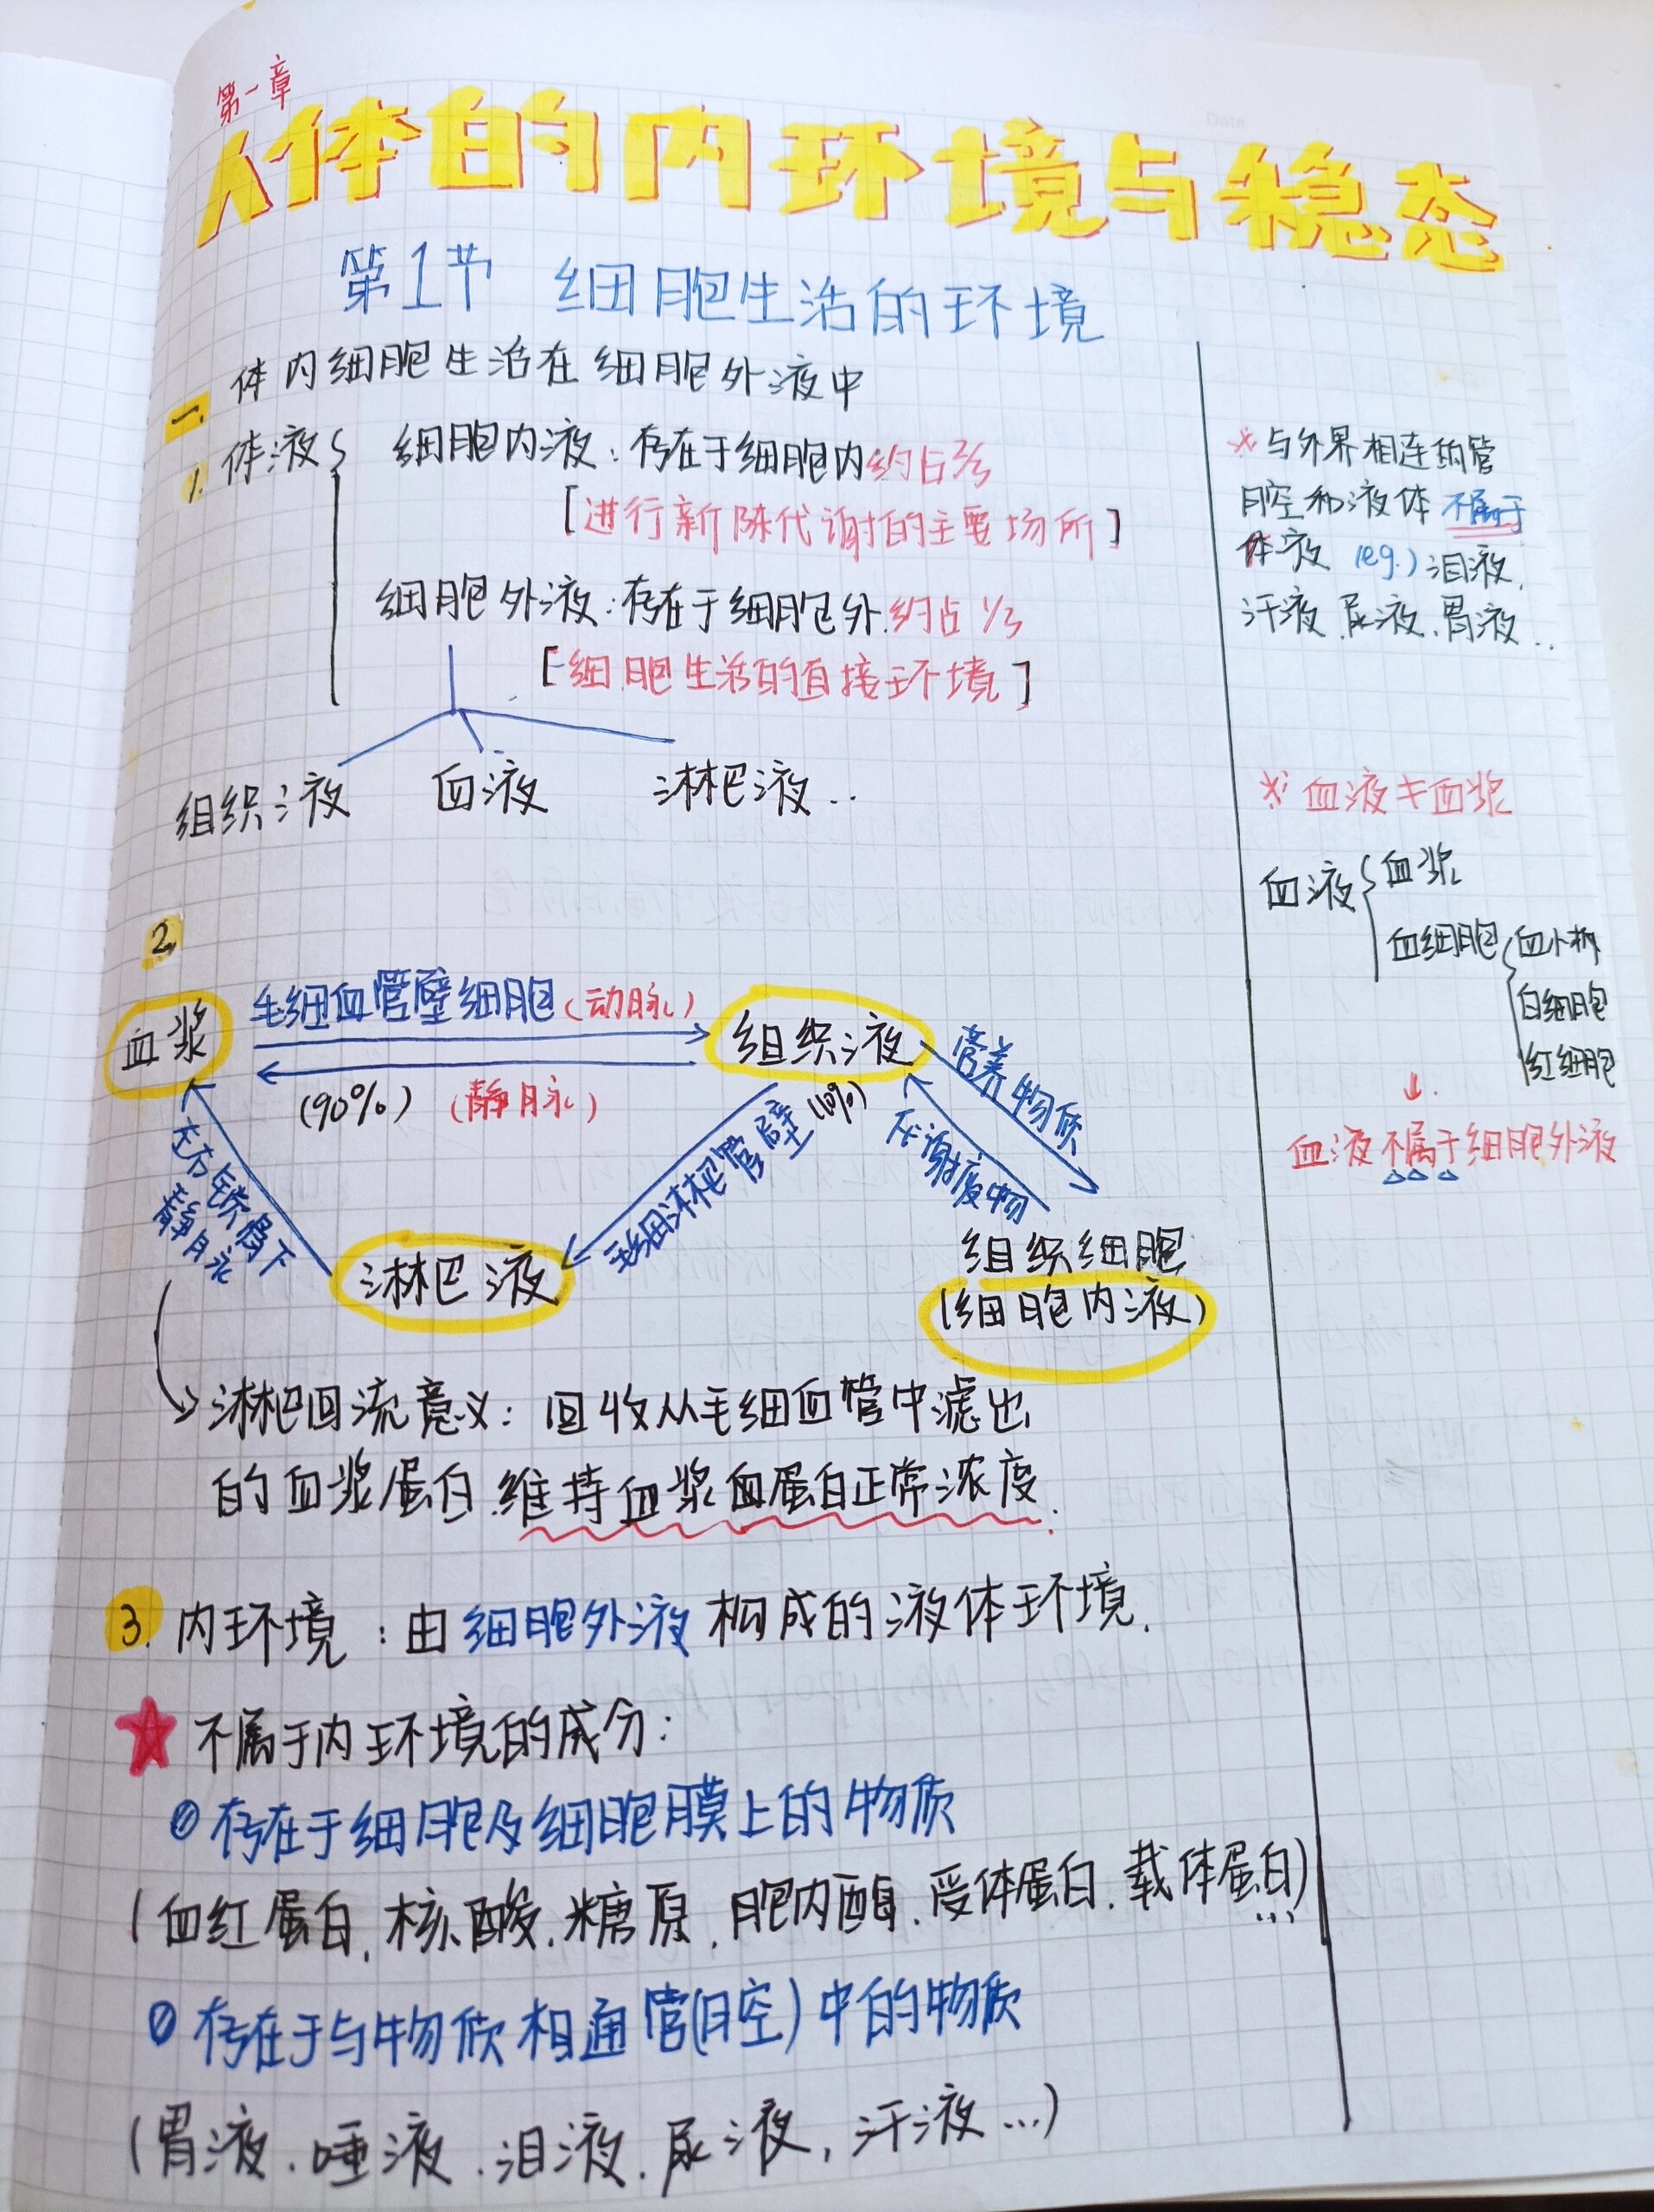 第一章
人体的内环境与稳态
第1节 细胞生活的环境
一. 体内细胞生活在细胞外液中
1. 体液{ 细胞内液：存在于细胞内约占2/3
[进行新陈代谢的主要场所]
细胞外液：存在于细胞外.约占1/3
[细胞生活的直接环境]
组织液 血液 淋巴液..
※与外界相连的管
腔和液体 不属于
体液 (eg.) 泪液.
汗液.尿液.胃液...
※ 血液≠血浆
血液{ 血浆
血细胞{ 血小板
白细胞
红细胞
↓.
血液不属于细胞外液
2.
毛细血管壁细胞(动脉)
血浆 组织液
(90%) (静脉)
(10%)
营养物质
代谢废物
毛细淋巴管壁
左右锁骨下
静脉
淋巴液
组织细胞
(细胞内液)
淋巴回流意义：回收从毛细血管中滤出
的血浆蛋白.维持血浆血蛋白正常浓度.
3. 内环境：由细胞外液构成的液体环境.
★ 不属于内环境的成分：
① 存在于细胞及细胞膜上的物质
(血红蛋白.核酸.糖原.胞内酶.受体蛋白.载体蛋白)...
② 存在于与物质相通管(腔)中的物质
(胃液.唾液.泪液.尿液,汗液...)